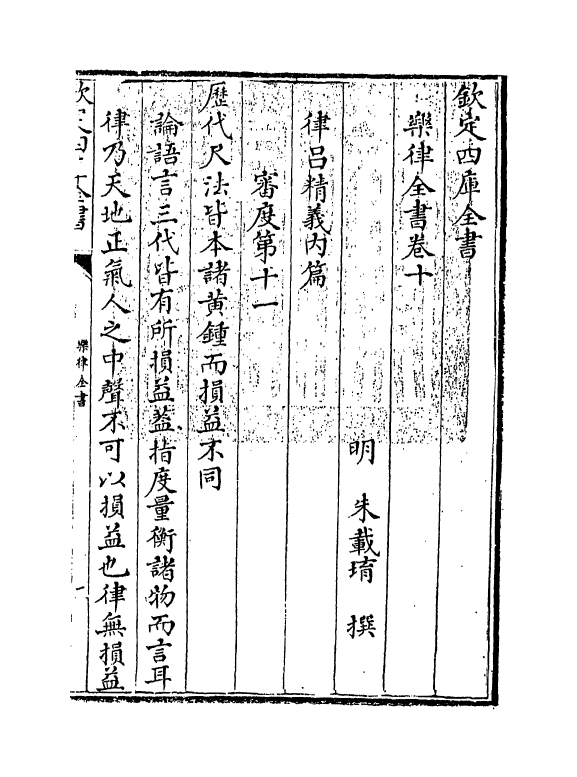 欽定四庫全書
樂律全書卷十
明 朱載堉 撰
律吕精義内篇
審度第十一
歷代尺法皆本諸黄鍾而損益不同
論語言三代皆有所損益葢指度量衡諸物而言耳
律乃天地正氣人之中聲不可以損益也律無損益
欽定四庫全書
樂律全書
一